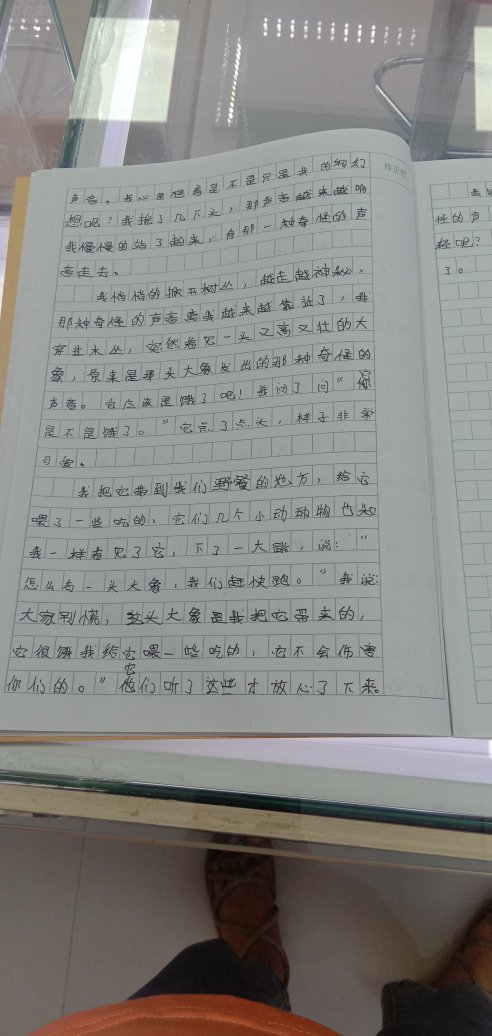 声音。我心里想着是不是只是我的的幻
想呢？我摇了几下头，那声音越来越响
我慢慢的站了起来，向那一种奇怪的声
音走去。
我悄悄的掀开树丛，越走越神秘，
那种奇怪的声音离我越来越靠近了，我
穿过木丛，突然看见一头又高又壮的大
象，原来是那头大象发出的那种奇怪的
声音。它应该是饿了吧！我问了问“你
是不是饿了。”它点了点头，样子非常
可爱。
我把它带到我们野餐的地方，给它
喂了一些吃的，它们几个小动动物也和
我一样看见了它，下了一大跳，说：“
怎么有一头大象，我们赶快跑。”我说：
大家别慌，这头大象是我把它带来的，
它很饿我给它喂一些吃的，它不会伤害
你们的。”它们听了这些才放心了下来。
修正栏
我
怪的声
怪呢？
了。